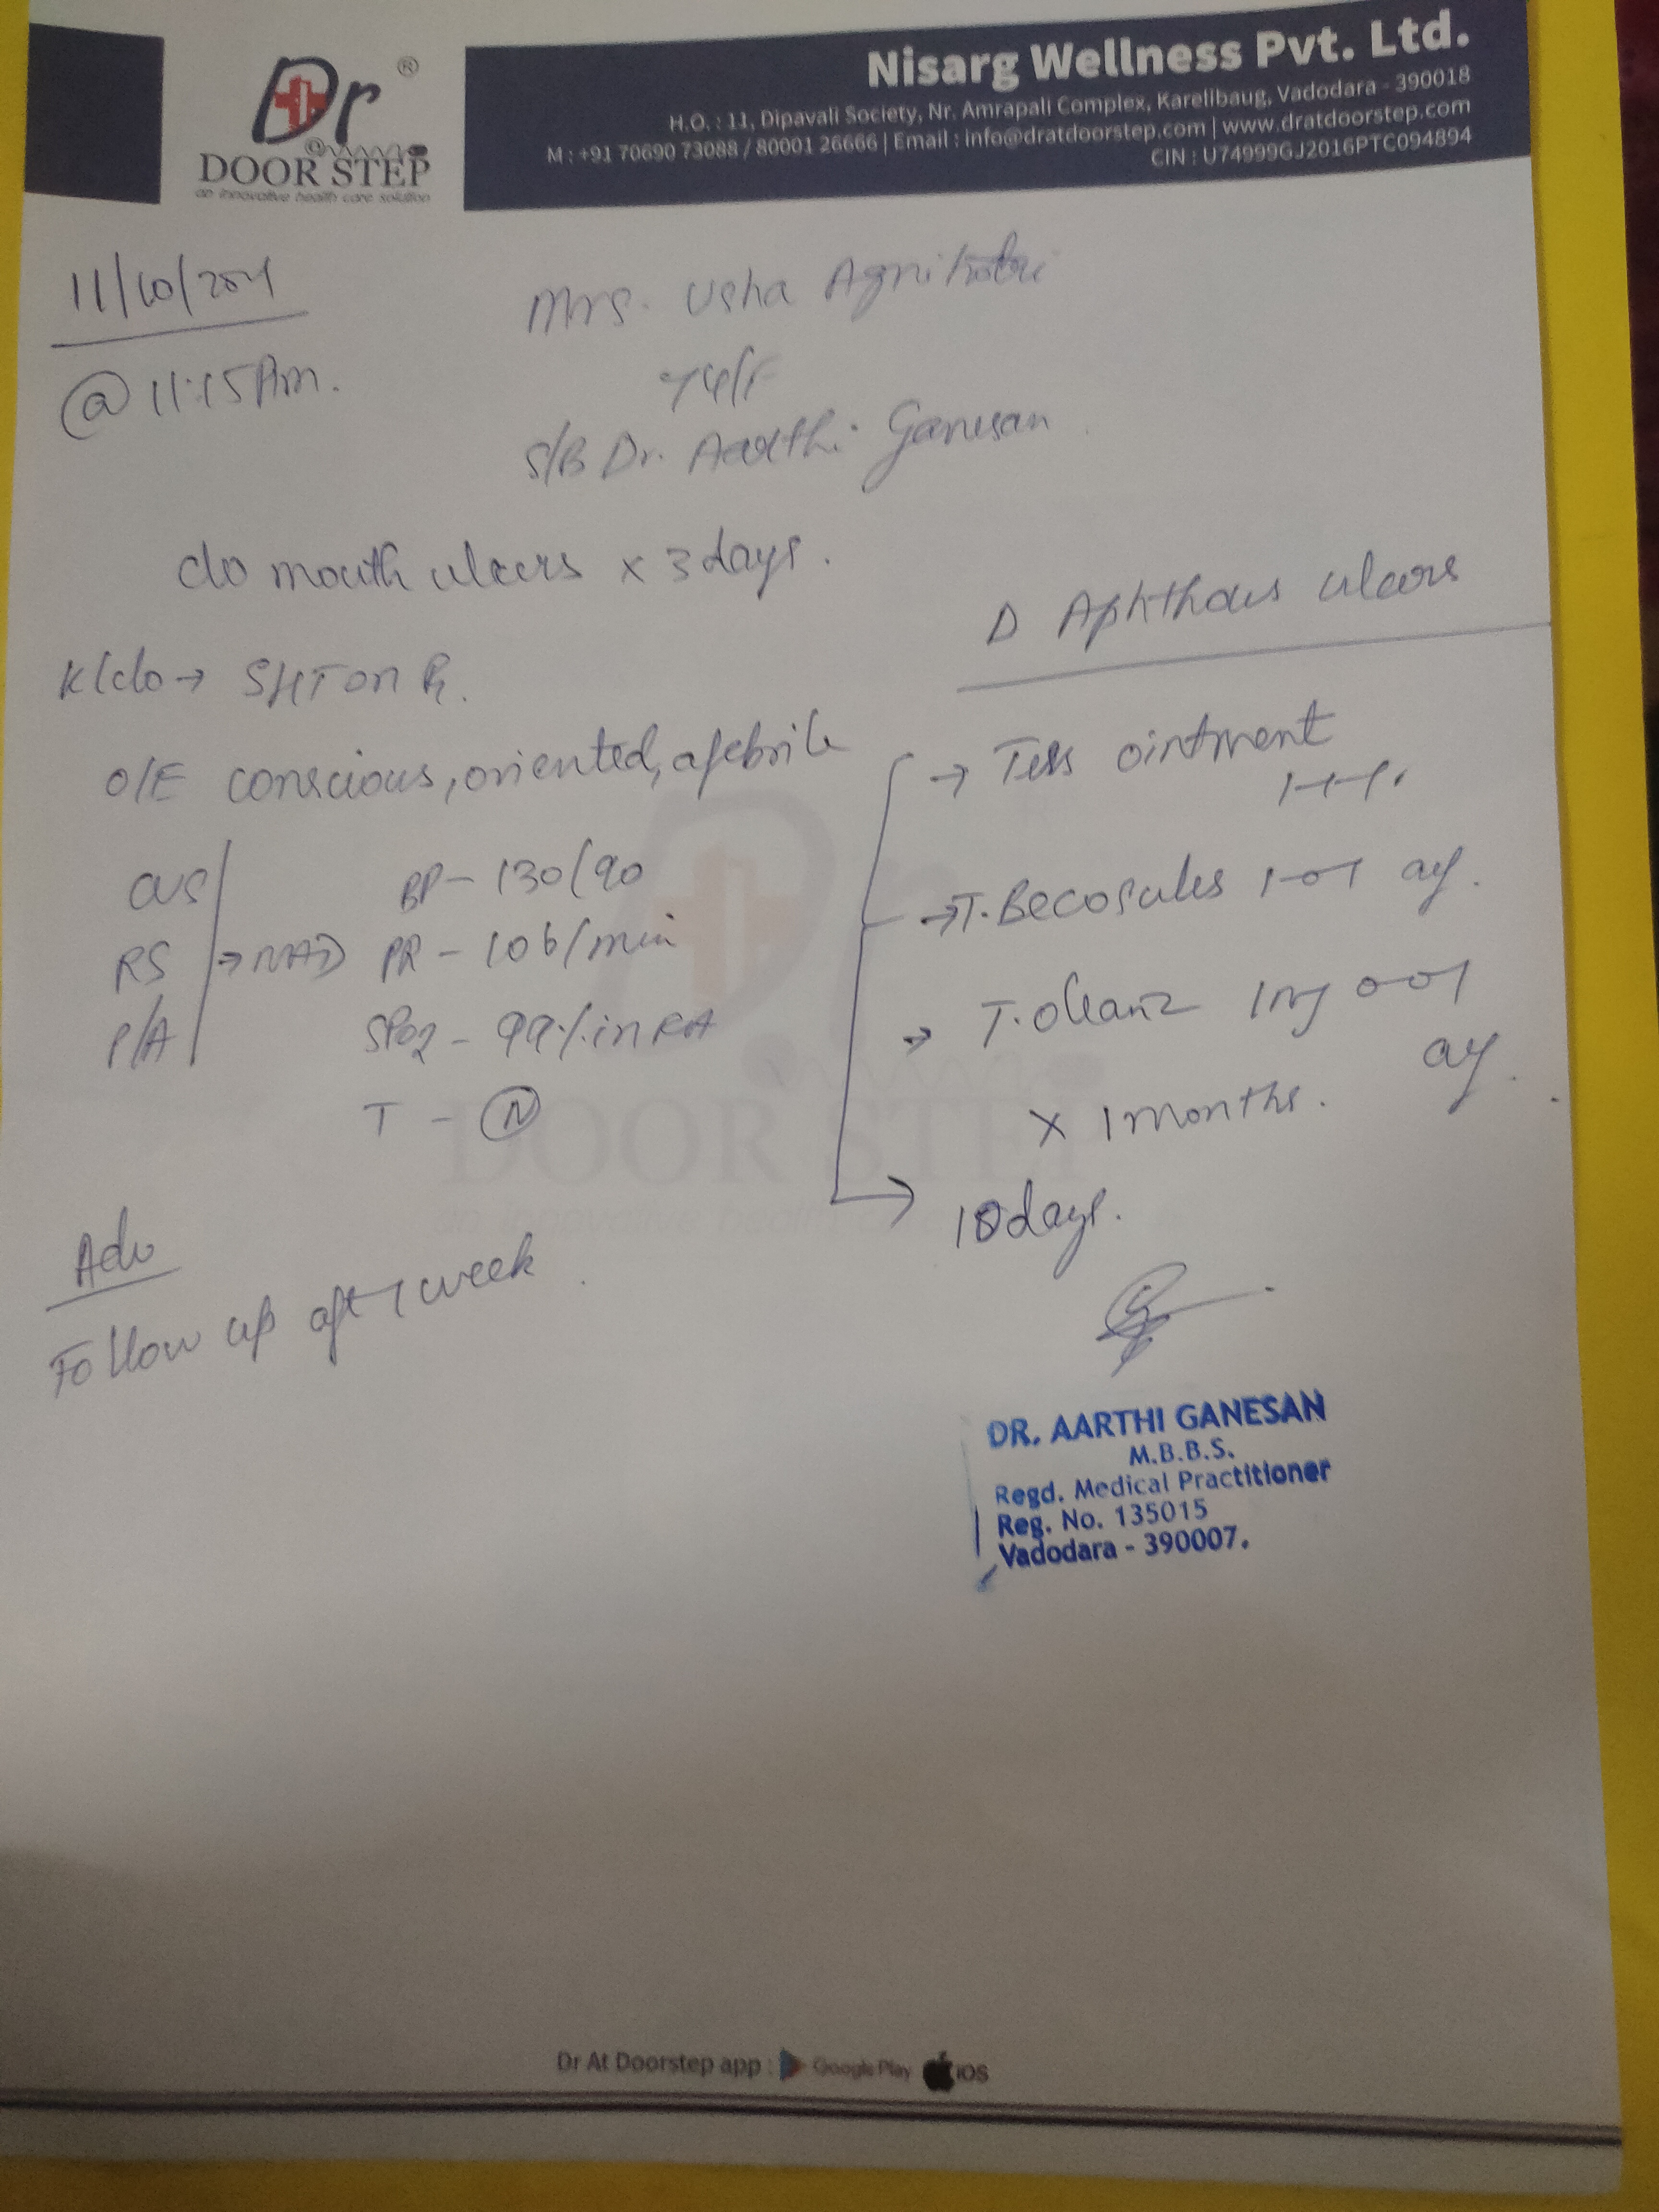 Dr ®
DOOR STEP
an innovative health care solution
Nisarg Wellness Pvt. Ltd.
H.O. : 11, Dipavali Society, Nr. Amrapali Complex, Karelibaug, Vadodara - 390018
M : +91 70690 73088 / 80001 26666 | Email : info@dratdoorstep.com | www.dratdoorstep.com
CIN : U74999GJ2016PTC094894
11/10/2024
@ 11:15 Am.
Mrs. Usha Agnihotri
74/F
S/B Dr. Aarthi Ganesan
c/o mouth ulcers x 3 days.
K/c/o → SHT on Rx.
O/E conscious, oriented, afebrile
CVS
RS → NAD
P/A
BP - 130/90
PR - 106/min
SPO2 - 99% in RA
T - N
Adv
Follow up aft 1 week
D Aphthous ulcers
→ Tess ointment
1-1-1.
→ T. Becosules 1-0-1
→ T. Oleanz 1mg 0-0-1
x 1 months.
→ 10 days.
DR. AARTHI GANESAN
M.B.B.S.
Regd. Medical Practitioner
Reg. No. 135015
Vadodara - 390007.
DOOR STEP
Dr At Doorstep app : Google Play iOS